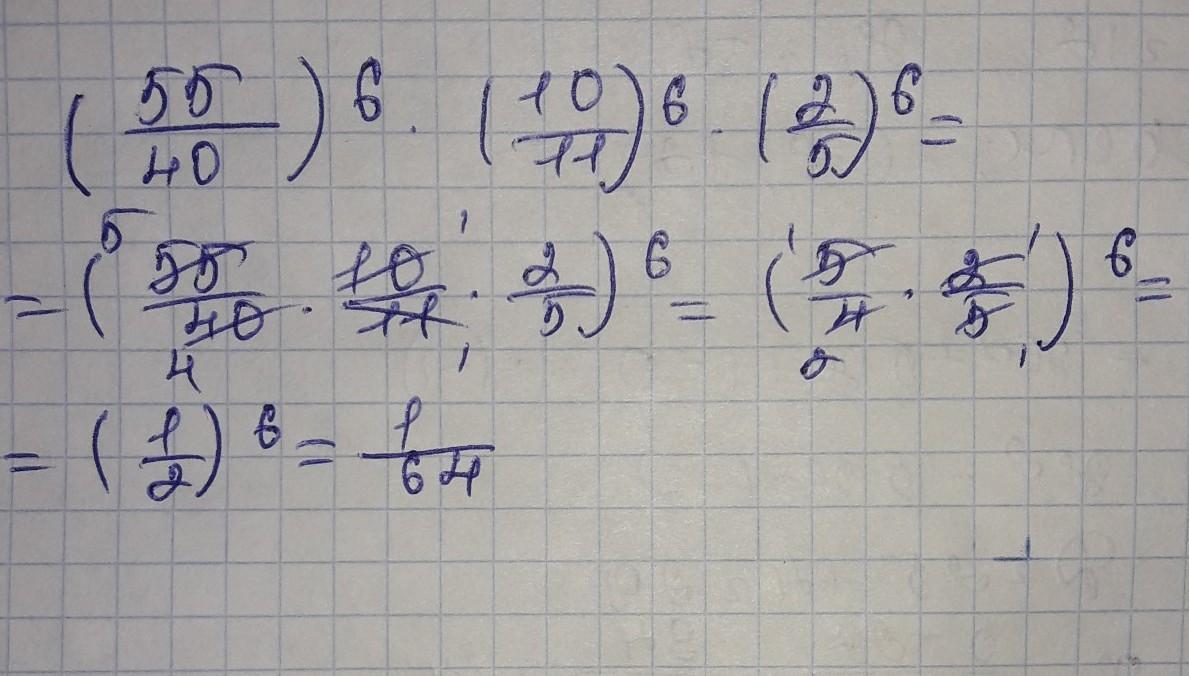 (55/40)^6 · (10/11)^6 · (2/5)^6 =
= (⁵ 55/40 ₄ · 10/11 ¹ ₁ · 2/5)^6 = (¹ 5/4 ₂ · 2/5 ¹ ₁)^6 =
= (1/2)^6 = 1/64